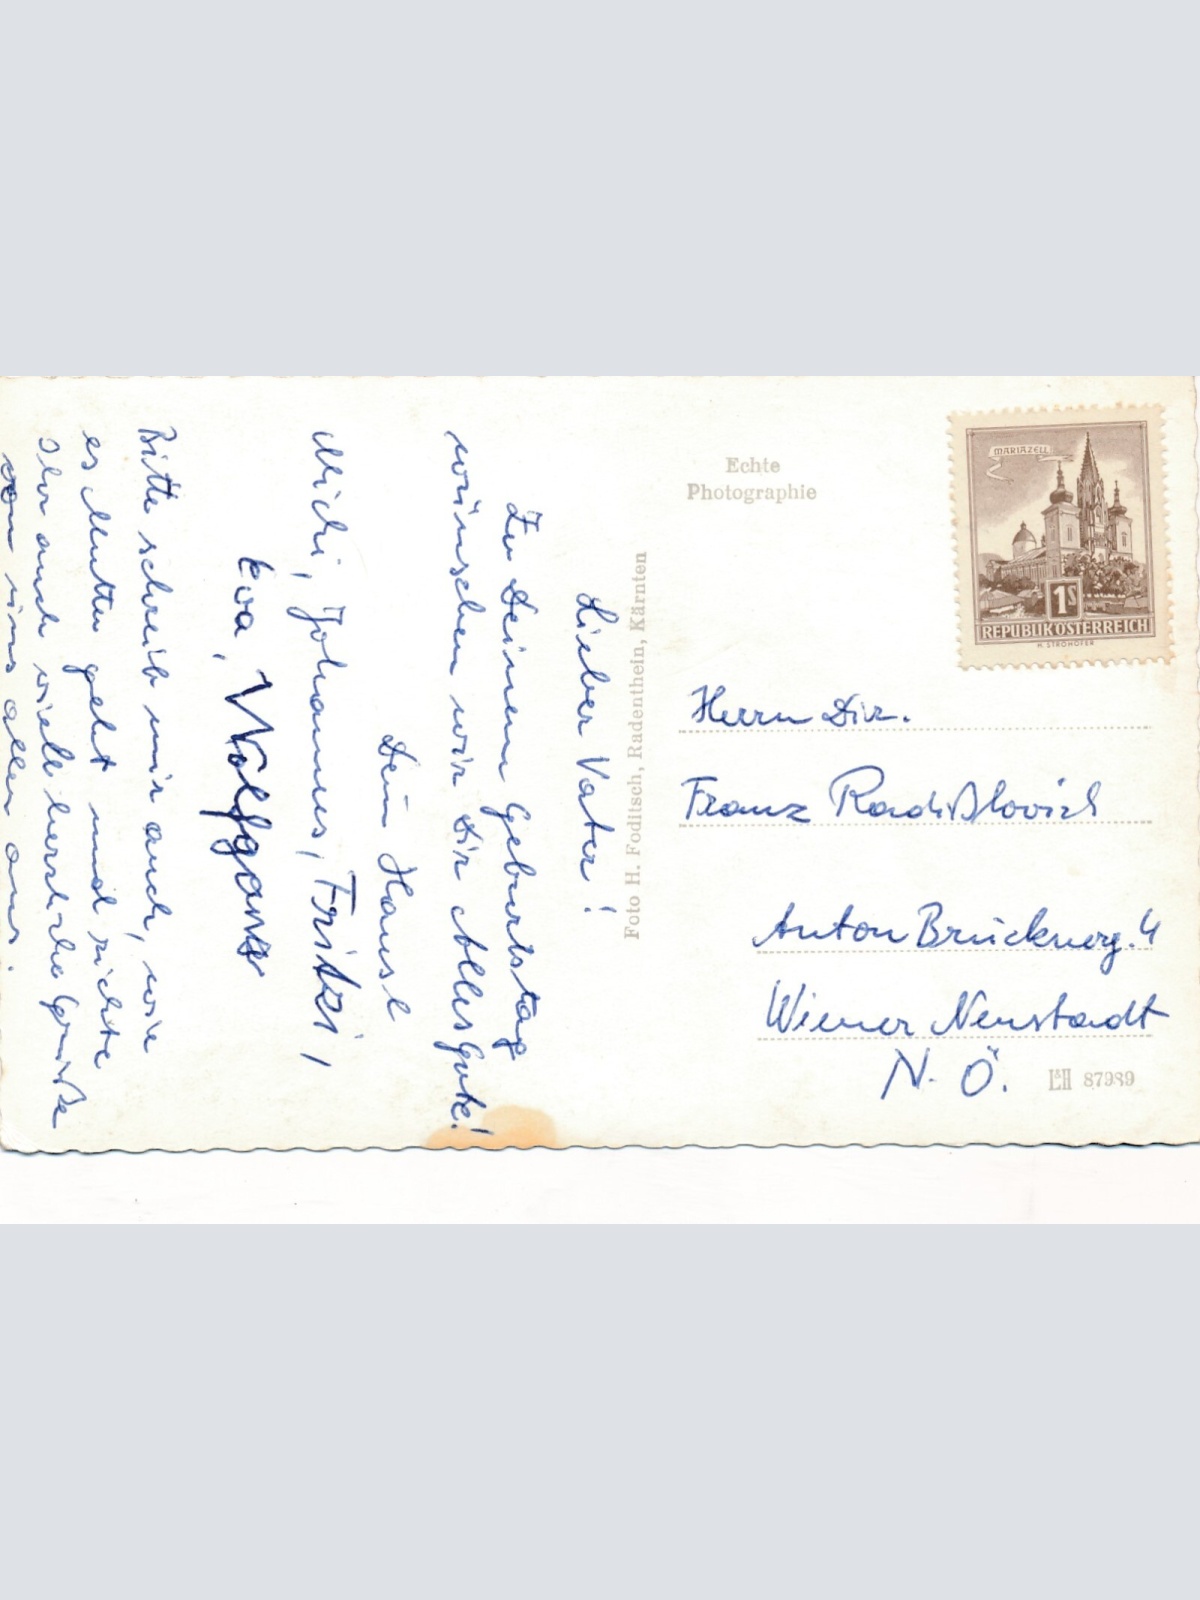 Lieber Vater!
Zu Deinem Geburtstag
wünschen wir Dir Alles Gute!
Dein Hansl
Michi, Johannes, Fritzi,
Eva, Wolfgang
Bitte schreib mir auch, wie
es Mutter geht und richte
ihr auch viele herzliche Grüße
von uns allen aus.
Foto H. Foditsch, Radenthein, Kärnten
Echte
Photographie
MARIAZELL
1S
REPUBLIK ÖSTERREICH
H. STROHOFER
Herrn Dir.
Franz
Anton Brucknerg. 4
Wiener Neustadt
N. Ö.
87989